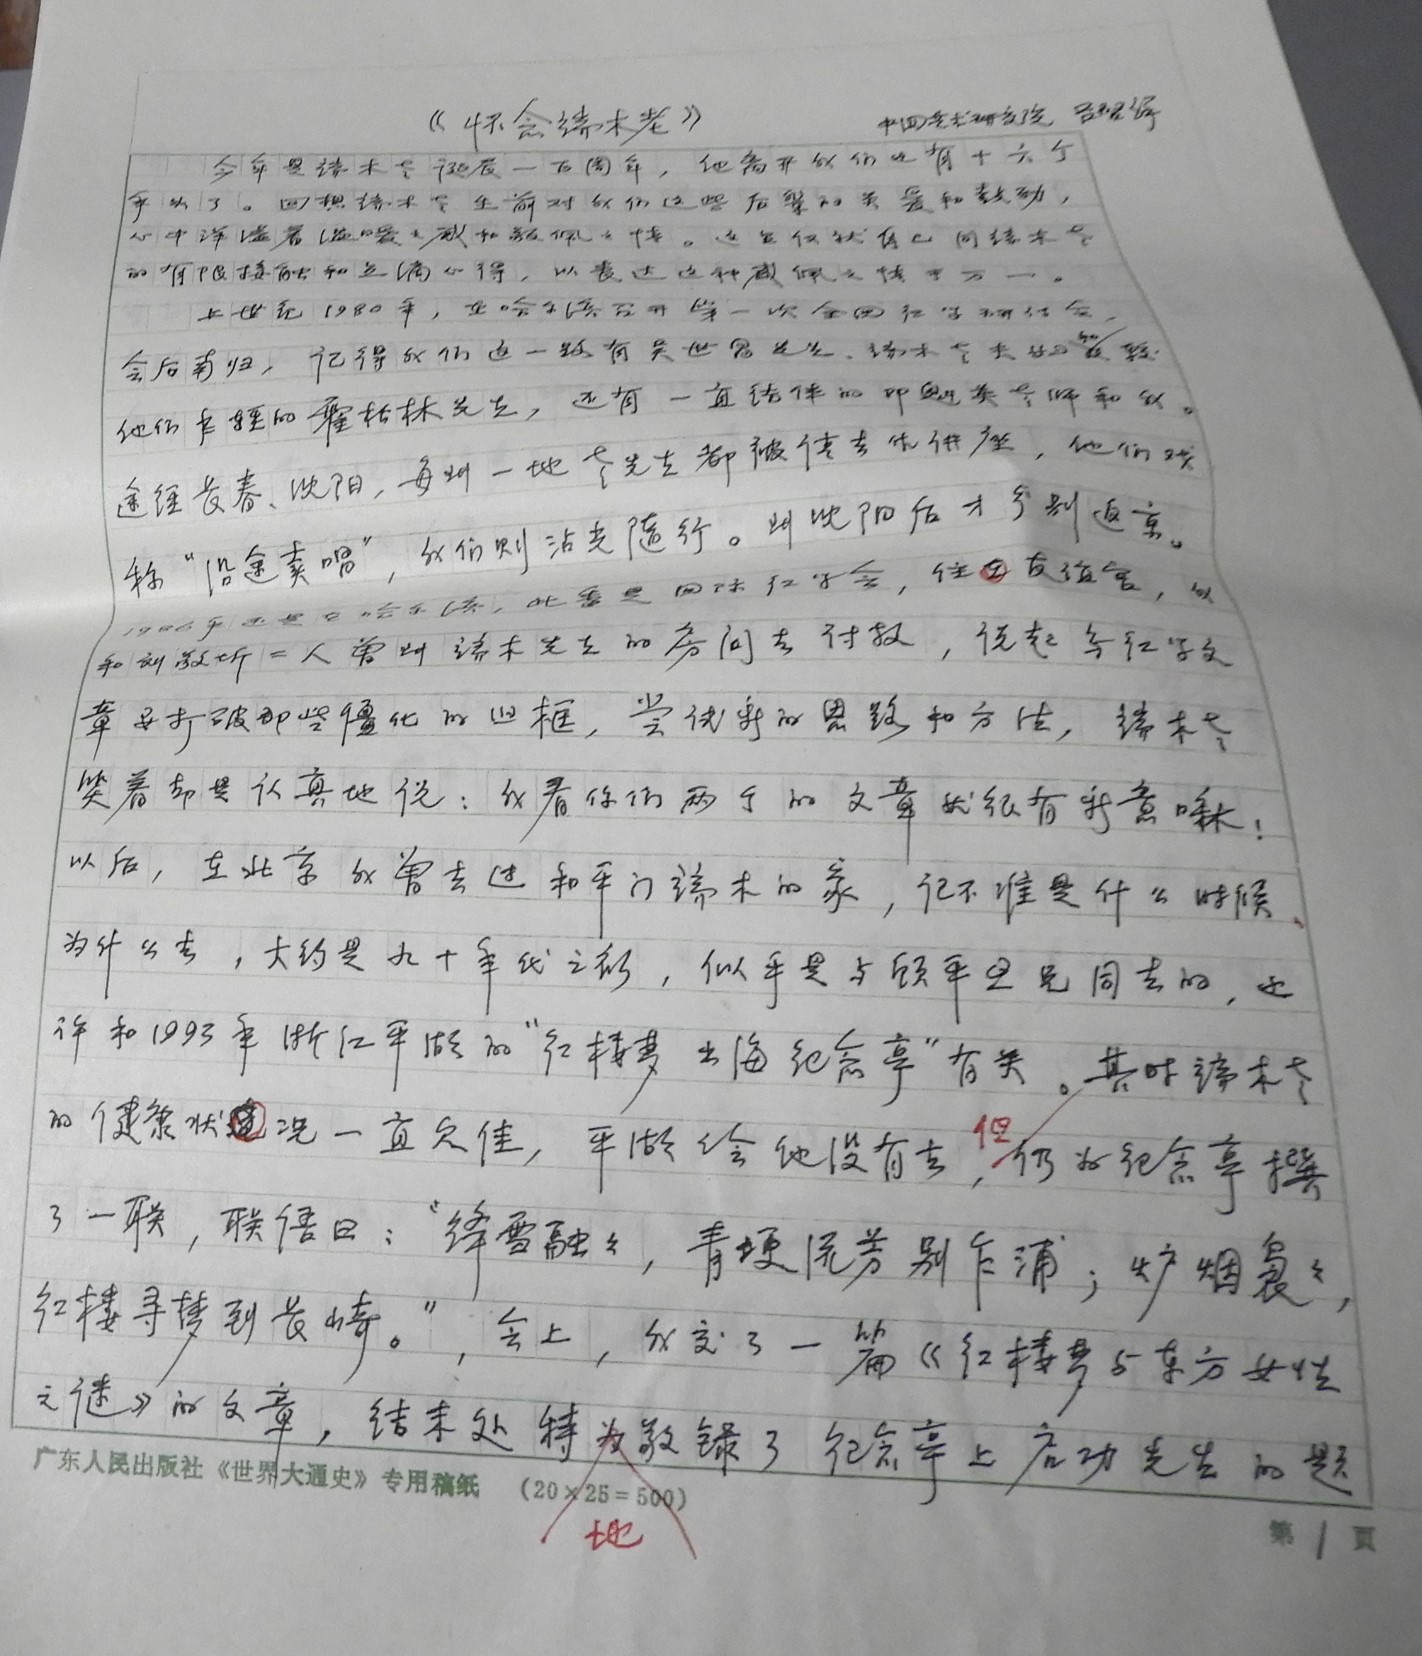 《怀念端木老》 中国艺术研究院 吕启祥
今年是端木老诞辰一百周年，他离开我们也有十六个
年头了。回想端木老生前对我们这些后辈的关爱和鼓励，
心中洋溢着温暖之感和敬佩之情。这里仅就自己同端木老
的有限接触和点滴心得，以表达这种感佩之情于万一。
上世纪1980年，在哈尔滨召开第一次全国红学研讨会，
会后南归，记得我们这一路有吴世昌先生、端木老夫妇
他们 的霍 林先生，还有一直结伴的邓魁英老师和我。
途经长春、沈阳，每到一地老先生都被请去作讲座，他们戏
称“沿途卖唱”，我们则沾光随行。到沈阳后才分别返京。
1986年还是在哈尔滨，此番是国际红学会，住在友谊宫，我
和刘敬圻二人曾到端木先生的房间去讨教，说起写红学文
章要打破那些僵化的旧框，尝试新的思路和方法，端木老
笑着却是认真地说：我看你们两个的文章就很有新意嘛！
以后，在北京我曾去过和平门端木的家，记不准是什么时候、
为什么去，大约是九十年代之初，似乎是与顾平旦兄同去的，也
许和1993年浙江平湖的“红楼梦出海纪念亭”有关。其时端木老
的健康状况一直欠佳，平湖会他没有去，但仍为纪念亭撰
了一联，联语曰：“绛雪融々，青埂流芳别乍浦；炉烟袅々，
红楼寻梦到长崎。”，会上，我交了一篇《红楼梦与东方女性
之谜》的文章，结末处特地敬录了纪念亭上启功先生的题
广东人民出版社《世界大通史》专用稿纸 （20×25=500）
第 1 页